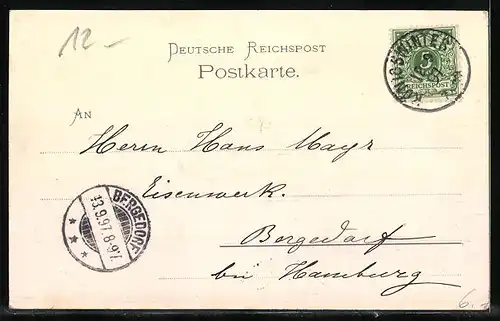 12 -
DEUTSCHE REICHSPOST
Postkarte.
KÖNIGSWINTER
5
REICHSPOST
AN
Herrn Hans Mayr
Eisenwerk.
Bergedorf
bei Hamburg
BERGEDORF
13.9.97. 8-9V.